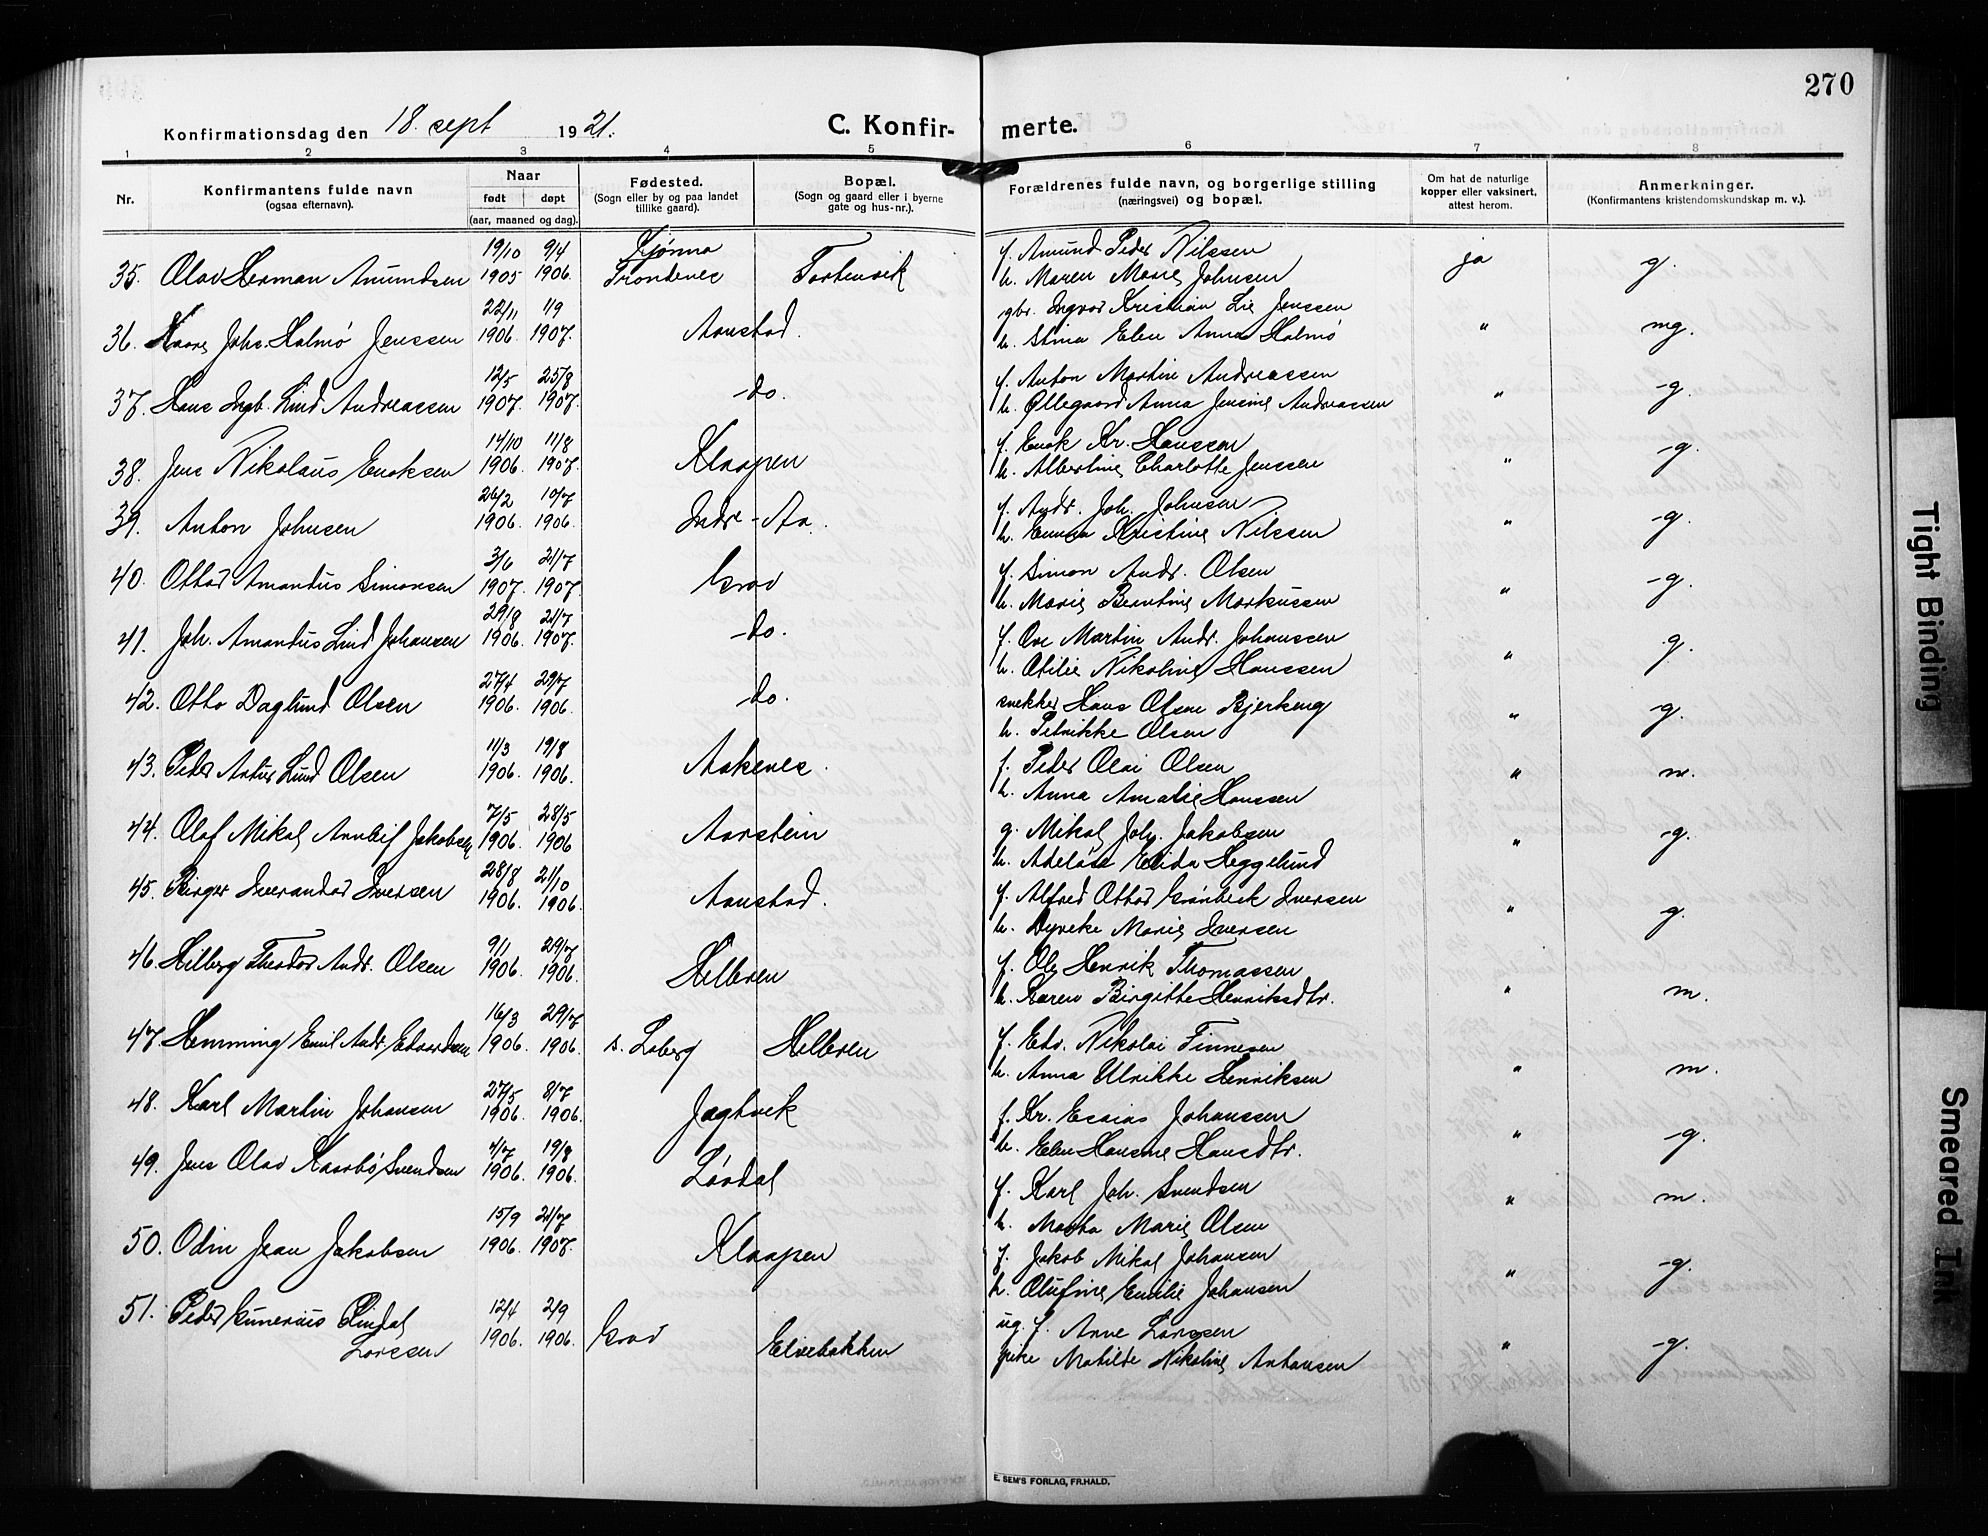 270
Konfirmationsdag den 18. sept 1921.
C. Konfir- merte.
1 2 3 4 5 6 7 8
Nr.
Konfirmantens fulde navn
(ogsaa efternavn).
Naar
født døpt
(aar, maaned og dag).
Fødested.
(Sogn eller by og paa landet
tillike gaard).
Bopæl.
(Sogn og gaard eller i byerne
gate og hus-nr.).
Forældrenes fulde navn, og borgerlige stilling
(næringsvei) og bopæl.
Om hat de naturlige
kopper eller vaksinert,
attest herom.
Anmerkninger.
(Konfirmantens kristendomskundskap m. v.).
19/10 9/4 Kjønna f. Amund Peder Nilssen
35. Olav Herman Amundsen 1905 1906. Trondenes h. Maren Marie Johnsen ja g.
22/11 1/9 gbr. Ingvar Kristian Lie Jenssen
36. Kaare Johs. Holmø Jenssen 1906. 1907. Aanstad. h. Stina Elen Anna Holmø " mg.
12/5 25/8 f. Anton Martin Andreassen
37. Hans Ingb. Lind Andreassen 1907. 1907. -do. h. Øllegaard Anna Jensine Andreassen " -g.
14/10 11/8 f. Enok Kr. Hanssen
38. Jens Nikolaus Enoksen 1906. 1907. Klaapen h. Albertine Charlotte Jenssen " -g.
26/2 10/7 f. Andr. Joh. Johnsen
39. Anton Johnsen 1906. 1906. Indr-Aa. h. Emma Kristine Nilssen " -g.
3/6 21/7 f. Simon Andr. Olsen
40. Ottar Amandus Simonsen 1907. 1907. Grav h. Marie Berntine Markussen " -g.
29/8 21/7 f. Ove Martin Andr. Johanssen
41. Joh. Amandus Lind Johansen 1906. 1907. -do. h. Otilie Nikoline Hanssen " g.
27/4 29/7 snekker Hans Olsen Bjerkeng
42. Otto Daglund Olsen 1906. 1906. -do. h. Petrikke Olsen " -g.
11/3 19/8 f. Peder Olai Olsen
43. Peder Artur Lund Olsen 1906. 1906. Aakenes. h. Anna Amalie Hanssen " m.
7/5 28/5 g. Mikal Joh. Jakobsen
44. Olaf Mikal Annleif Jakobsen 1906. 1906 Aarstein h. Adeløse Elida Heggelund " -g.
28/8 21/10 f. Alfred Ottar Grønbeck Iversen
45. Birger Iverandar Iversen 1906. 1906. Aanstad. h. Dyveke Marie Iversen " g.
9/1 29/7 f. Ole Henrik Thomassen
46. Hilberg Theodor Andr. Olsen 1906. 1906. Hilleren h. Karen Birgitte Henriksdtr. " m.
16/3 29/7 f. Edv. Nikolai Finnesen
47. Hemming Emil Andr. Edvardsen 1906. 1906. s. Loberg Hilleren h. Anna Ulrikke Henriksen " m.
27/5 8/7 f. Kr. Esaias Johanssen
48. Karl Martin Johansen 1906. 1906. Jagtvik h. Elen Hansine Hansdtr. " -g.
4/7 19/8 f. Karl Joh. Svendsen
49. Jens Olav Kaarbø Svendsen 1906. 1906. Lovdal h. Marta Marie Olsen " m.
15/9 21/7 f. Jakob Mikal Johansen
50. Odin Jean Jakobsen 1906. 1907. Klaapen h. Olufine Emilie Johansen " -g.
51. Peder Gunerius Rindal 12/4 2/9 ug. f. Arne Larssen
Larssen 1906. 1906. Grav Elvebakken pike Matilde Nikoline Antonsen " -g.
E. SEM'S FORLAG, FR.HALD.
Tight Binding
Smeared Ink